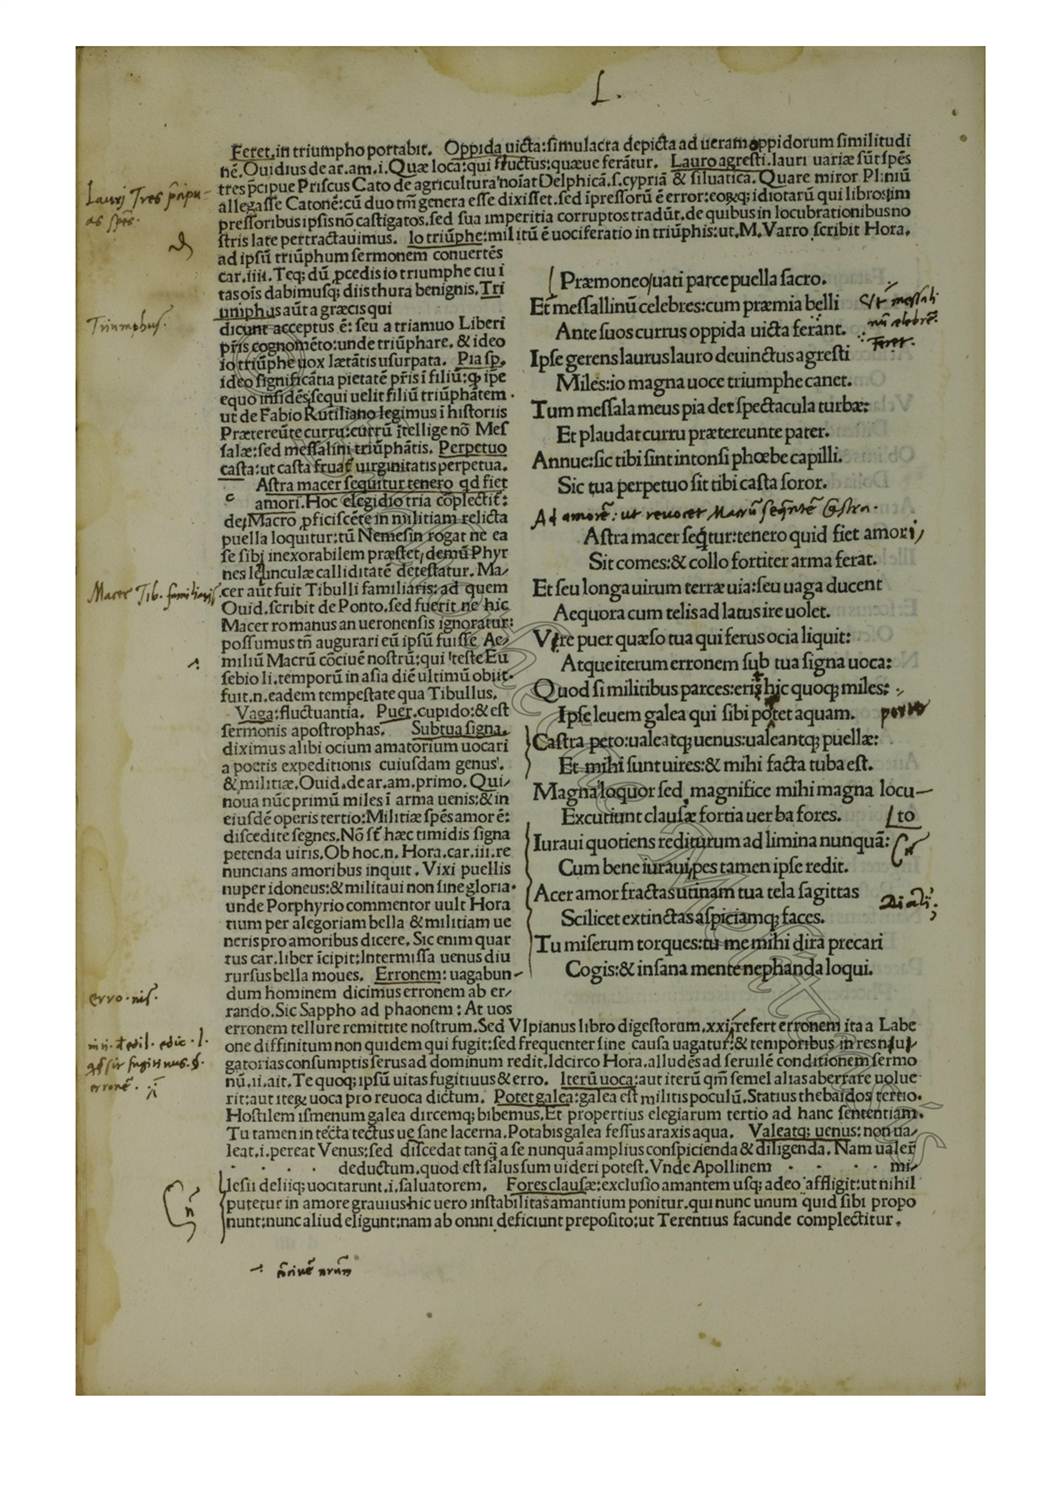 L.
Feret.in triumpho portabit. Oppida uicta:simulacra depicta ad ueram oppidorum similitudi
nē.Ouidius de ar.am.i.Quæ loca:qui fluctus:quæue ferātur. Lauro agresti.lauri uariæ sūt spēs
tres p̄cipue Priscus Cato de agricultura noīat Delphicā.s.cypriā & siluatica. Quare miror Pliniū
allegasse Catonē:cū duo tm̄ genera esse dixisset.sed īpressorū ē error:eoꝝq; idiotarū qui libros im
pressoribus ipsis nō castigatos,sed sua imperitia corruptos tradūt.de quibus in locubrationibus no
stris late pertractauimus. Io triūphe:militū ē uociferatio in triūphis:ut.M.Varro scribit Hora.
ad ipsū triūphum sermonem conuertēs
car.iiii.Teq; dū p̄cedis io triumphe ciui
tas oīs dabimusq; diis thura benignis. Tri
umphus aūt a græcis qui
dicunt acceptus ē: seu a triamuo Liberi
pr̄is cognomēto:unde triūphare, & ideo
io triūphe uox lætātis usurpata. Pia sp,
ideo significātia pietatē pr̄is ī filiū:q ipe
equo insidēs sequi uelit filiū triūphātem.
ut de Fabio Rutiliano legimus ī historiis
Prætereūte curru:currū ītellige nō Mes
salæ:sed messalini triūphātis. Perpetuo
casta:ut casta fruat uirginitatis perpetua.
Astra macer sequitur tenero qd fiet
amori.Hoc elegidio tria cōplectit:
de Macro p̄ficiscēte in militiam relicta
puella loquitur:tū Nemesin rogat ne ea
se sibi inexorabilem præstet, demū Phyr
nes lenunculæ calliditatē detestatur. Ma/
cer aūt fuit Tibulli familiaris:ad quem
Ouid.scribit de Ponto.sed fuerit ne hic
Macer romanus an ueronensis ignoratur:
possumus tn̄ augurari eū ipsū fuisse Ae/
miliū Macrū cōciuē nostrū:qui teste Eu
sebio li.temporū in asia diē ultimū obiit.
fuit.n.eadem tempestate qua Tibullus.
Vaga:fluctuantia. Puer.cupido:& est
sermonis apostrophas. Sub tua signa.
diximus alibi ocium amatorium uocari
a poetis expeditionis cuiusdam genus,
& militiæ.Ouid.de ar.am.primo. Qui/
noua nūc primū miles ī arma uenis:& in
eiusdē operis tertio:Militiæ spēs amor ē:
discedite segnes.Nō st̄ hæc timidis signa
petenda uiris.Ob hoc.n.Hora.car.iii.re
nuncians amoribus inquit. Vixi puellis
nuper idoneus:& militaui non sine gloria.
unde Porphyrio commentor uult Hora
tium per alegoriam bella & militiam ue
neris pro amoribus dicere. Sic enim quar
tus car.liber īcipit:Intermissa uenus diu
rursus bella moues. Erronem:uagabun
dum hominem dicimus erronem ab er/
rando.Sic Sappho ad phaonem: At uos
Præmoneo:uati parce puella sacro.
Et messallinū celebres:cum præmia belli
Ante suos currus oppida uicta ferant.
Ipse gerens laurus lauro deuinctus agresti
Miles:io magna uoce triumphe canet.
Tum messala meus pia det spectacula turbæ:
Et plaudat curru prætereunte pater.
Annue:sic tibi sint intonsi phœbe capilli.
Sic tua perpetuo sit tibi casta soror.
Ad amorē: ut reuocet Macrū seqntē castra.
Astra macer seqtur:tenero quid fiet amori
Sit comes:& collo fortiter arma ferat.
Et seu longa uirum terræ uia:seu uaga ducent
Aequora cum telis ad latus ire uolet.
Vre puer quæso tua qui ferus ocia liquit:
Atque iterum erronem sub tua signa uoca:
Quod si militibus parces:erit hic quoq; miles:
Ipse leuem galea qui sibi potet aquam.
Castra peto:ualeatq; uenus:ualeantq; puellæ:
Et mihi sunt uires:& mihi facta tuba est.
Magna loquor sed magnifice mihi magna locu
Excutiunt clausæ fortia uer ba fores. to
Iuraui quotiens rediturum ad limina nunquā:
Cum bene iuraui,pes tamen ipse redit.
Acer amor fractas utinam tua tela sagittas
Scilicet extinctas aspiciamq; faces.
Tu miserum torques:tu me mihi dira precari
Cogis:& insana mente nephanda loqui.
erronem tellure remittite nostrum.Sed Vlpianus libro digestorum.xxi,refert erronem ita a Labe
one diffinitum non quidem qui fugit:sed frequenter sine causa uagatur:& temporibus in res nu
gatorias consumptis serus ad dominum redit.Idcirco Hora.alludēs ad seruilē conditionem sermo
nū.ii.ait.Te quoq; ipsū uitas fugitiuus & erro. Iterū uoca:aut iterū qm̄ semel alias aberrare uolue
rit:aut iteꝝ uoca pro reuoca dictum. Potet galea:galea est militis poculū.Statius thebaidos tertio.
Hostilem ismenum galea dircemq; bibemus.Et propertius elegiarum tertio ad hanc sententiam.
Tu tamen in tecta tectus ue sane lacerna.Potabis galea fessus araxis aqua. Valeatq; uenus: non ua/
leat.i.pereat Venus:sed discedat tanq̄ a se nunquā amplius conspicienda & diligenda. Nam ualere
. . . . deductum.quod est saluus sum uideri potest.Vnde Apollinem . . . . mi/
lesii deliiq; uocitarunt.i.saluatorem. Fores clausæ:exclusio amantem usq; adeo affligit:ut nihil
putetur in amore grauius hic uero instabilitas amantium ponitur.qui nunc unum quid sibi propo
nunt:nunc aliud eligunt:nam ab omni deficiunt preposito:ut Terentius facunde complectitur.
Laurj Tres
Triumphus.
Macer Tib. familiaris
erro.nis.